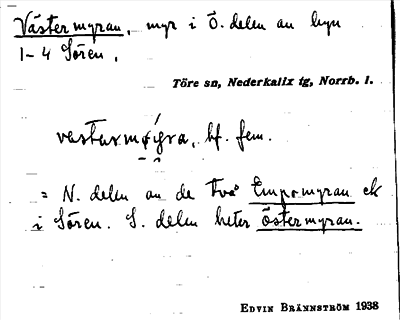 Västermyran, myr i Ö. delen av hyn
1-4 Sören.
Töre sn, Nederkalix tg, Norrb. l.
bf. fem.
= N. delen av de två Empomyran ek
i Sören. S. delen heter Östermyran.
EDVIN BRÄNNSTRÖM 1938